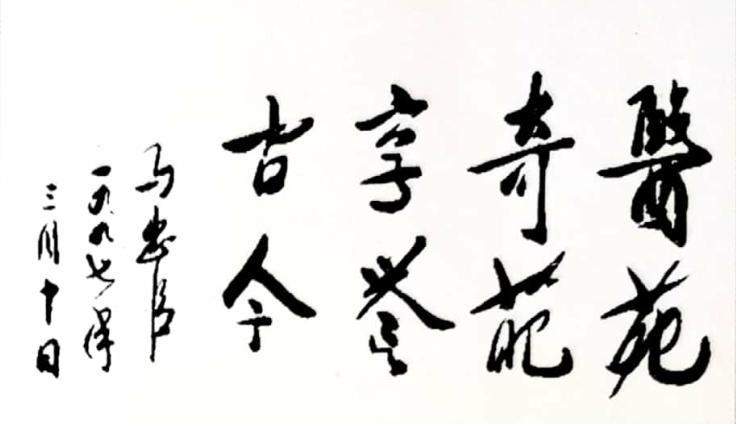 醫苑
奇葩
享誉
古今
马忠臣
一九九七年
三月十日